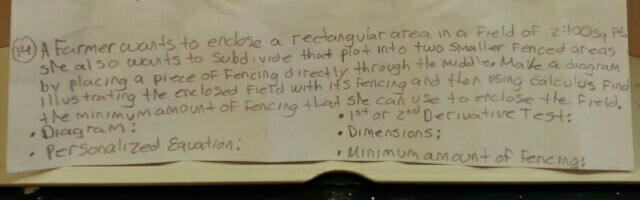 14) A Farmer wants to enclose a rectangular area in a Field of 2400sq Ft.
she also wants to subdivide that plot into two smaller Fenced areas
by placing a piece of Fencing directly through the middle. Make a diagram
illustrating the enclosed Field with its fencing and then using calculus Find
the minimum amount of fencing that she can use to enclose the Field.
• Diagram:
• Personalized Equation:
• 1st or 2nd Derivative Test:
• Dimensions:
• Minimum amount of Fencing: